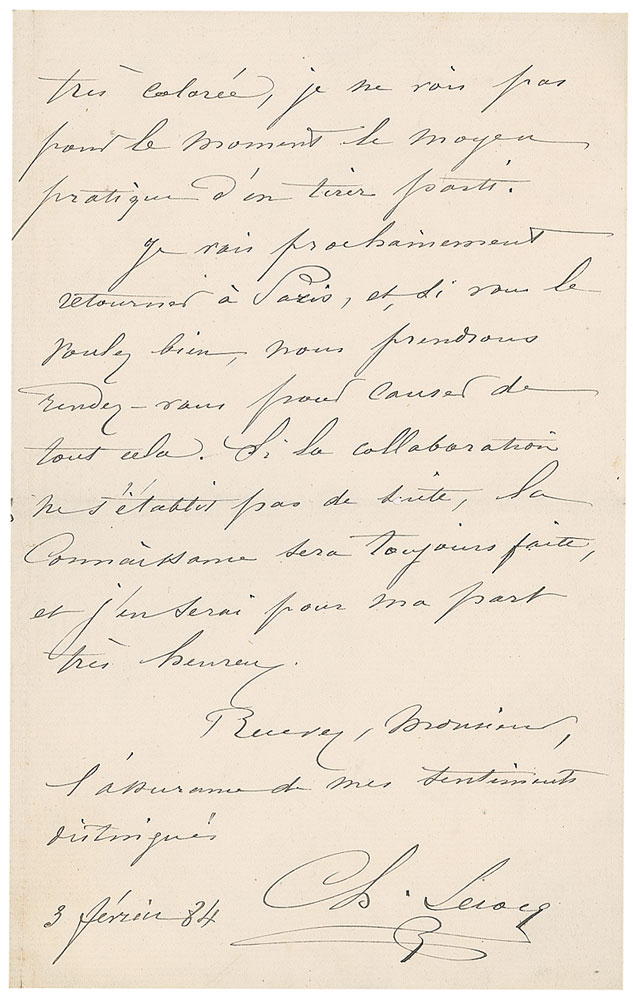 très colorée, je ne vois pas
pour le moment le moyen
pratique d'en tirer parti.
Je vais prochainement
retourner à Paris, et, si vous le
voulez bien, nous prendrons
rendez-vous pour causer de
tout cela. Si la collaboration
ne s'établit pas de suite, la
connaissance sera toujours faite,
et j'en serai pour ma part
très heureux.
Recevez, Monsieur,
l'assurance de mes sentiments
distingués
Ch. Lecocq
3 février 84